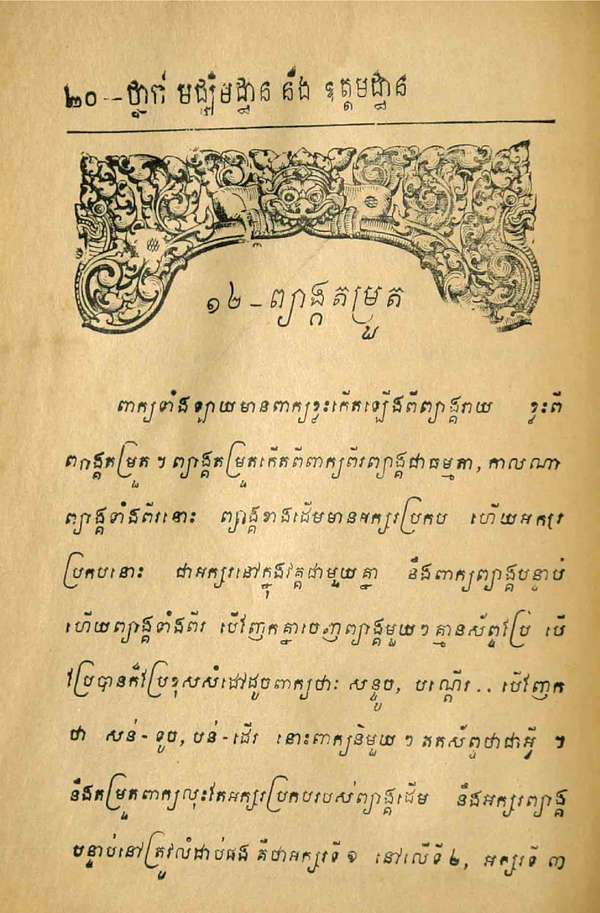 ២០--ថ្នាក់ មជ្ឈិមដ្ឋាន នឹង ឧត្តមដ្ឋាន
១៤-ព្យាង្គតម្រួត
ពាក្យទាំងឡាយមានពាក្យខ្លះកើតឡើងពីព្យាង្គរាយ ខ្លះពី
ព្យាង្គតម្រួត ។ ព្យាង្គតម្រួតកើតពីពាក្យពីរព្យាង្គជាធម្មតា, កាលណា
ព្យាង្គទាំងពីរនោះ ព្យាង្គខាងដើមមានអក្សរប្រកប ហើយអក្សរ
ប្រកបនោះ ជាអក្សរនៅក្នុងវគ្គជាមួយគ្នា នឹងពាក្យព្យាង្គបន្ទាប់
ហើយព្យាង្គទាំងពីរ បើញែកគ្នាចេញព្យាង្គមួយ ៗ គ្មានស័ព្ទប្រែ បើ
ប្រែបានក៏ប្រែខុសសំដៅដូចពាក្យថាៈ សន្ទូច, បណ្ដើរ . . បើញែក
ថា សន់-ទូច, បន់-ដើរ នោះពាក្យនិមួយ ៗ ឥតស័ព្ទថាជាអ្វី ។
នឹងតម្រួតពាក្យលុះតែអក្សរប្រកបរបស់ព្យាង្គដើម នឹងអក្សរព្យាង្គ
បន្ទាប់នៅត្រូវលំដាប់ផង គឺថាអក្សរទី ១ នៅលើទី ២, អក្សរទី ៣